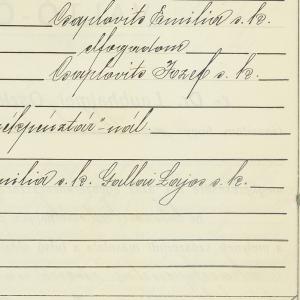 Csaplovits Emilia s. k.
elfogadom
Csaplovits József s. k.
ékpénztár"-nál.
milia s. k. Gallai Lajos s. k.